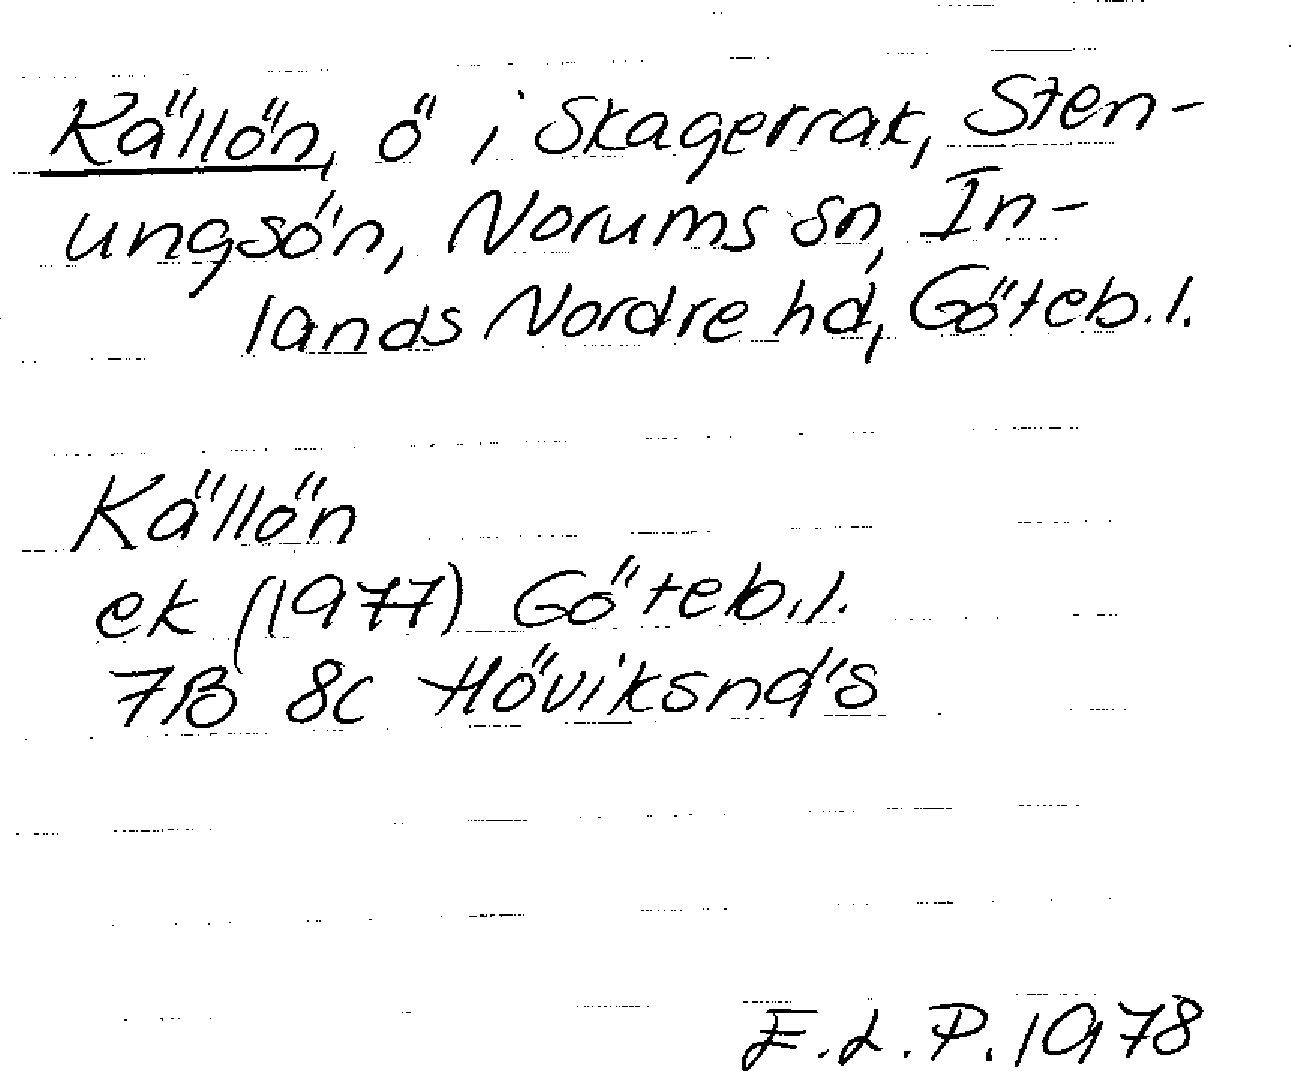 Källön, ö i Skagerrak, Sten-
ungsön, Norums sn, In-
lands Nordre hd, Göteb.l.
Källön
ek (1977) Göteb.l.
7B 8c Höviksnäs
E.L.P. 1978